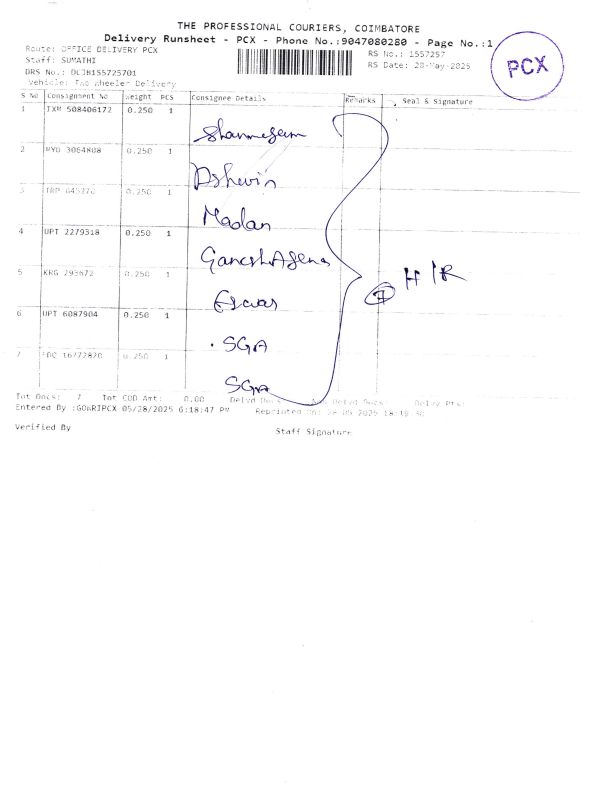 THE PROFESSIONAL COURIERS, COIMBATORE
Delivery Runsheet - PCX - Phone No.:9047080280 - Page No.:1
Route: OFFICE DELIVERY PCX RS No.: 1557257
Staff: SUMATHI RS Date: 28-May-2025
DRS No.: DCJB155725701
Vehicle: Two Wheeler Delivery
PCX
S No Consignment No Weight PCS Consignee Details Remarks Seal & Signature
1 508406172 0.250 1
2 0.250 1
Dshwin
3 0.250 1
Madan
4 UPT 2279318 0.250 1
Ganesh Agency
5 KRG 293672 0.250 1
H/R
7
6 UPT 6087904 0.250 1
SGA
7 0.250 1
SGA
Tot Docs: 7 Tot COD Amt: 0.00 Delvd Docs:
Entered By :GOWRIPCX 05/28/2025 6:18:47 PM Reprinted On: 28-05-2025
Verified By Staff Signature